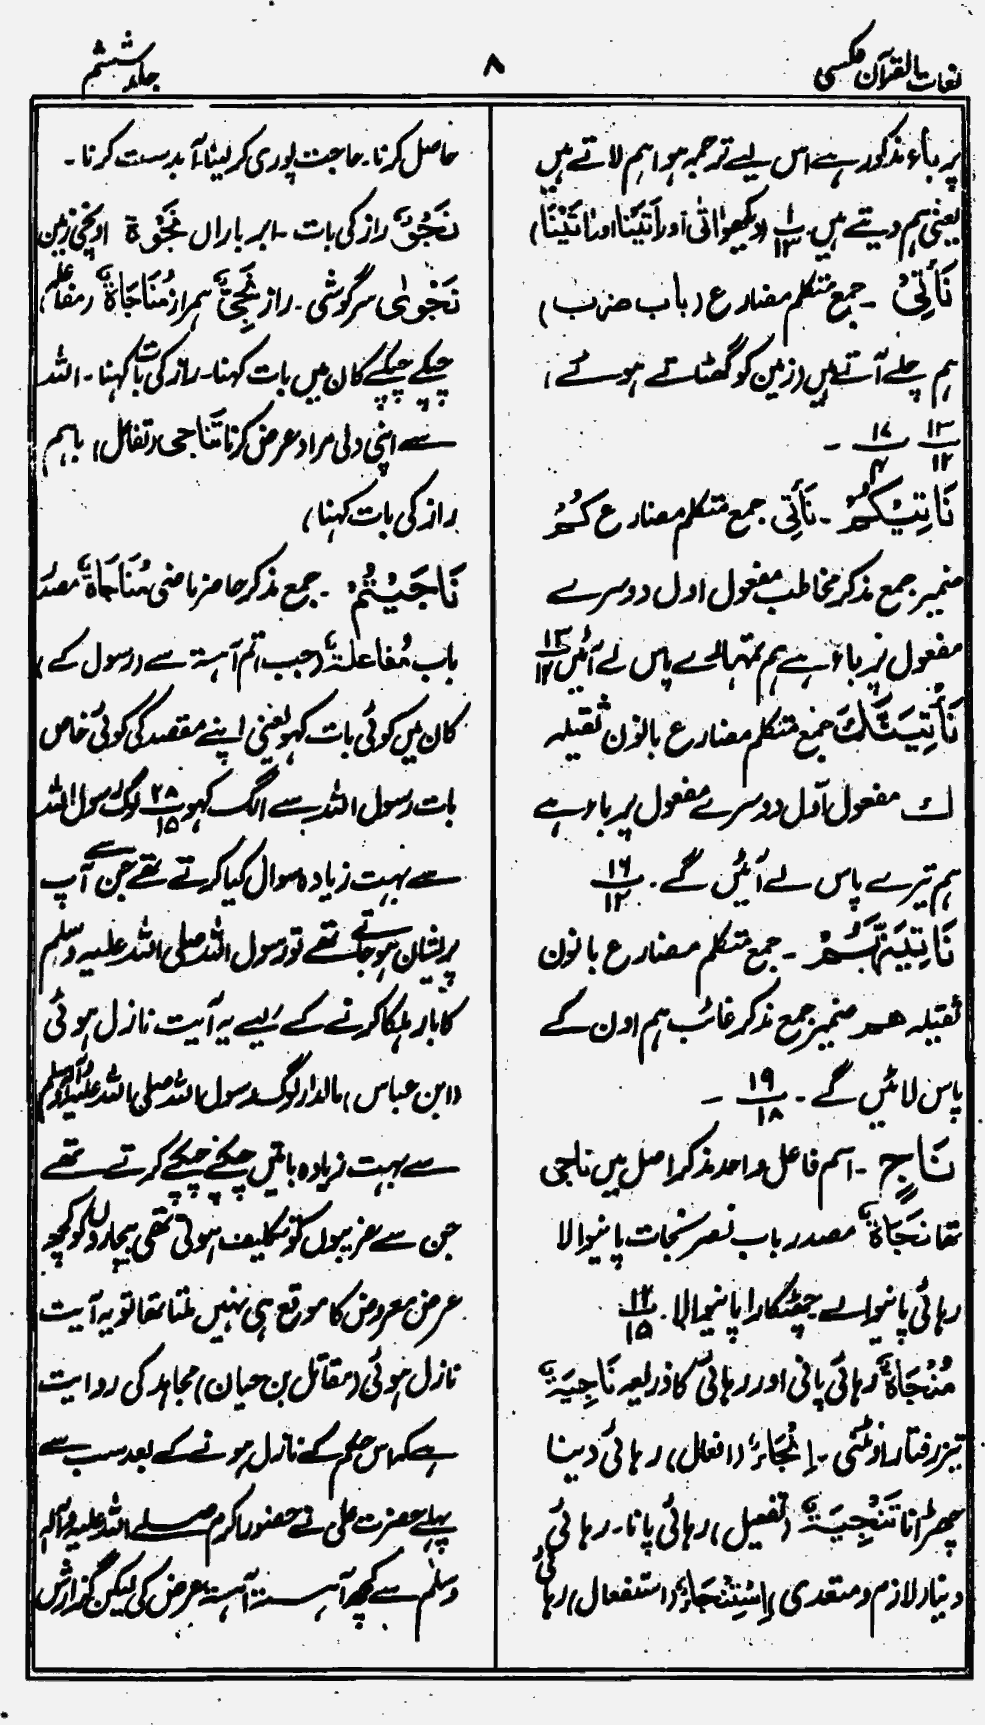 لغات القرآن عکسی
۸
جلد ششم
پر باء مذکور ہے اس لیے ترجمہ ہوا ہم لاتے ہیں
یعنی ہم دیتے ہیں. ۱/۱۳ (دیکھو اٰتٰی اور اَتَیْنَا اور اٰتَیْنَا)
نَأْتِیْ ۔ جمع متکلم مضارع (باب ضرب)
ہم چلے آتے ہیں (زمین کو گھٹاتے ہوئے)
۱۳/۱۲ ۱۷/۴ ۔
نَاتِیْکُمْ ۔ نَأتِی جمع متکلم مضارع کُمْ
ضمیر جمع مذکر مخاطب مفعول اول دوسرے
مفعول پر باء ہے ہم تمہارے پاس لے آئیں ۱۳/۱۴
نَأْتِیَنَّكَ جمع متکلم مضارع بانون ثقیلہ
ك مفعول اول دوسرے مفعول پر باء ہے
ہم تیرے پاس لے آئیں گے. ۱۶/۱۲
نَاتِیَنَّہُمْ ۔ جمع متکلم مضارع بانون
ثقیلہ ھم ضمیر جمع مذکر غائب ہم اون کے
پاس لائیں گے ۔ ۱۹/۱۸ ۔
نَاجٍ ۔ اسم فاعل واحد مذکر اصل میں ناجی
تھا نَجَاةٌ مصدر باب نصر نجات پانیوالا
رہائی پانیوالے چھٹکارا پانیوالا. ۱۲/۱۵
مُنْجَاةٌ رہائی پانی اور رہائی کا ذریعہ نَاجِیَةٌ
تیز رفتار اونٹنی ۔ اِنْجَاءٌ (افعال) رہائی دینا
چھڑانا تَنْجِیَةٌ (تفعیل) رہائی پانا۔ رہائی
دینا (لازم و متعدی) اِسْتِنْجَاءٌ (استفعال) رہائی
حاصل کرنا۔ حاجت پوری کر لینا۔ آبدست کرنا ۔
نَجْوٌ راز کی بات ۔ ابر باراں نَجْوَة اونچی زمین
نَجْوٰی سرگوشی ۔ راز نَجِیٌّ ہمراز مُنَاجَاةٌ (مفاعلہ)
چپکے چپکے کان میں بات کہنا۔ راز کی بات کہنا ۔ اللہ
سے اپنی دلی مراد عرض کرنا تَنَاجی (تفاعل) باہم
راز کی بات کہنا)
نَاجَیْتُمْ ۔ جمع مذکر حاضر ماضی مُنَاجَاةٌ مصدر
باب مُفاعلۃٌ (جب تم آہستہ سے (رسول کے)
کان میں کوئی بات کہو یعنی اپنے مقصد کی کوئی خاص
بات رسول اللہ سے الگ کہو ۲۸/۱۵ لوگ رسول اللہ
سے بہت زیادہ سوال کیا کرتے تھے جن سے آپ
پریشان ہو جاتے تھے تو رسول اللہ صلی اللہ علیہ وسلم
کا بار ہلکا کرنے کے لیے یہ آیت نازل ہوئی
(ابن عباس) مالدار لوگ رسول اللہ صلی اللہ علیہ وآلہ وسلم
سے بہت زیادہ باتیں چپکے چپکے کرتے تھے
جن سے غریبوں کو تکلیف ہوتی تھی بیچاروں کو کچھ
عرض معروض کا موقع ہی نہیں ملتا تھا تو یہ آیت
نازل ہوئی (مقاتل بن حیان) مجاہد کی روایت
ہے کہ اس حکم کے نازل ہونے کے بعد سب سے
پہلے حضرت علی نے حضور اکرم صلے اللہ علیہ وآلہ
وسلم سے کچھ آہستہ آہستہ عرض کی لیکن گذارش